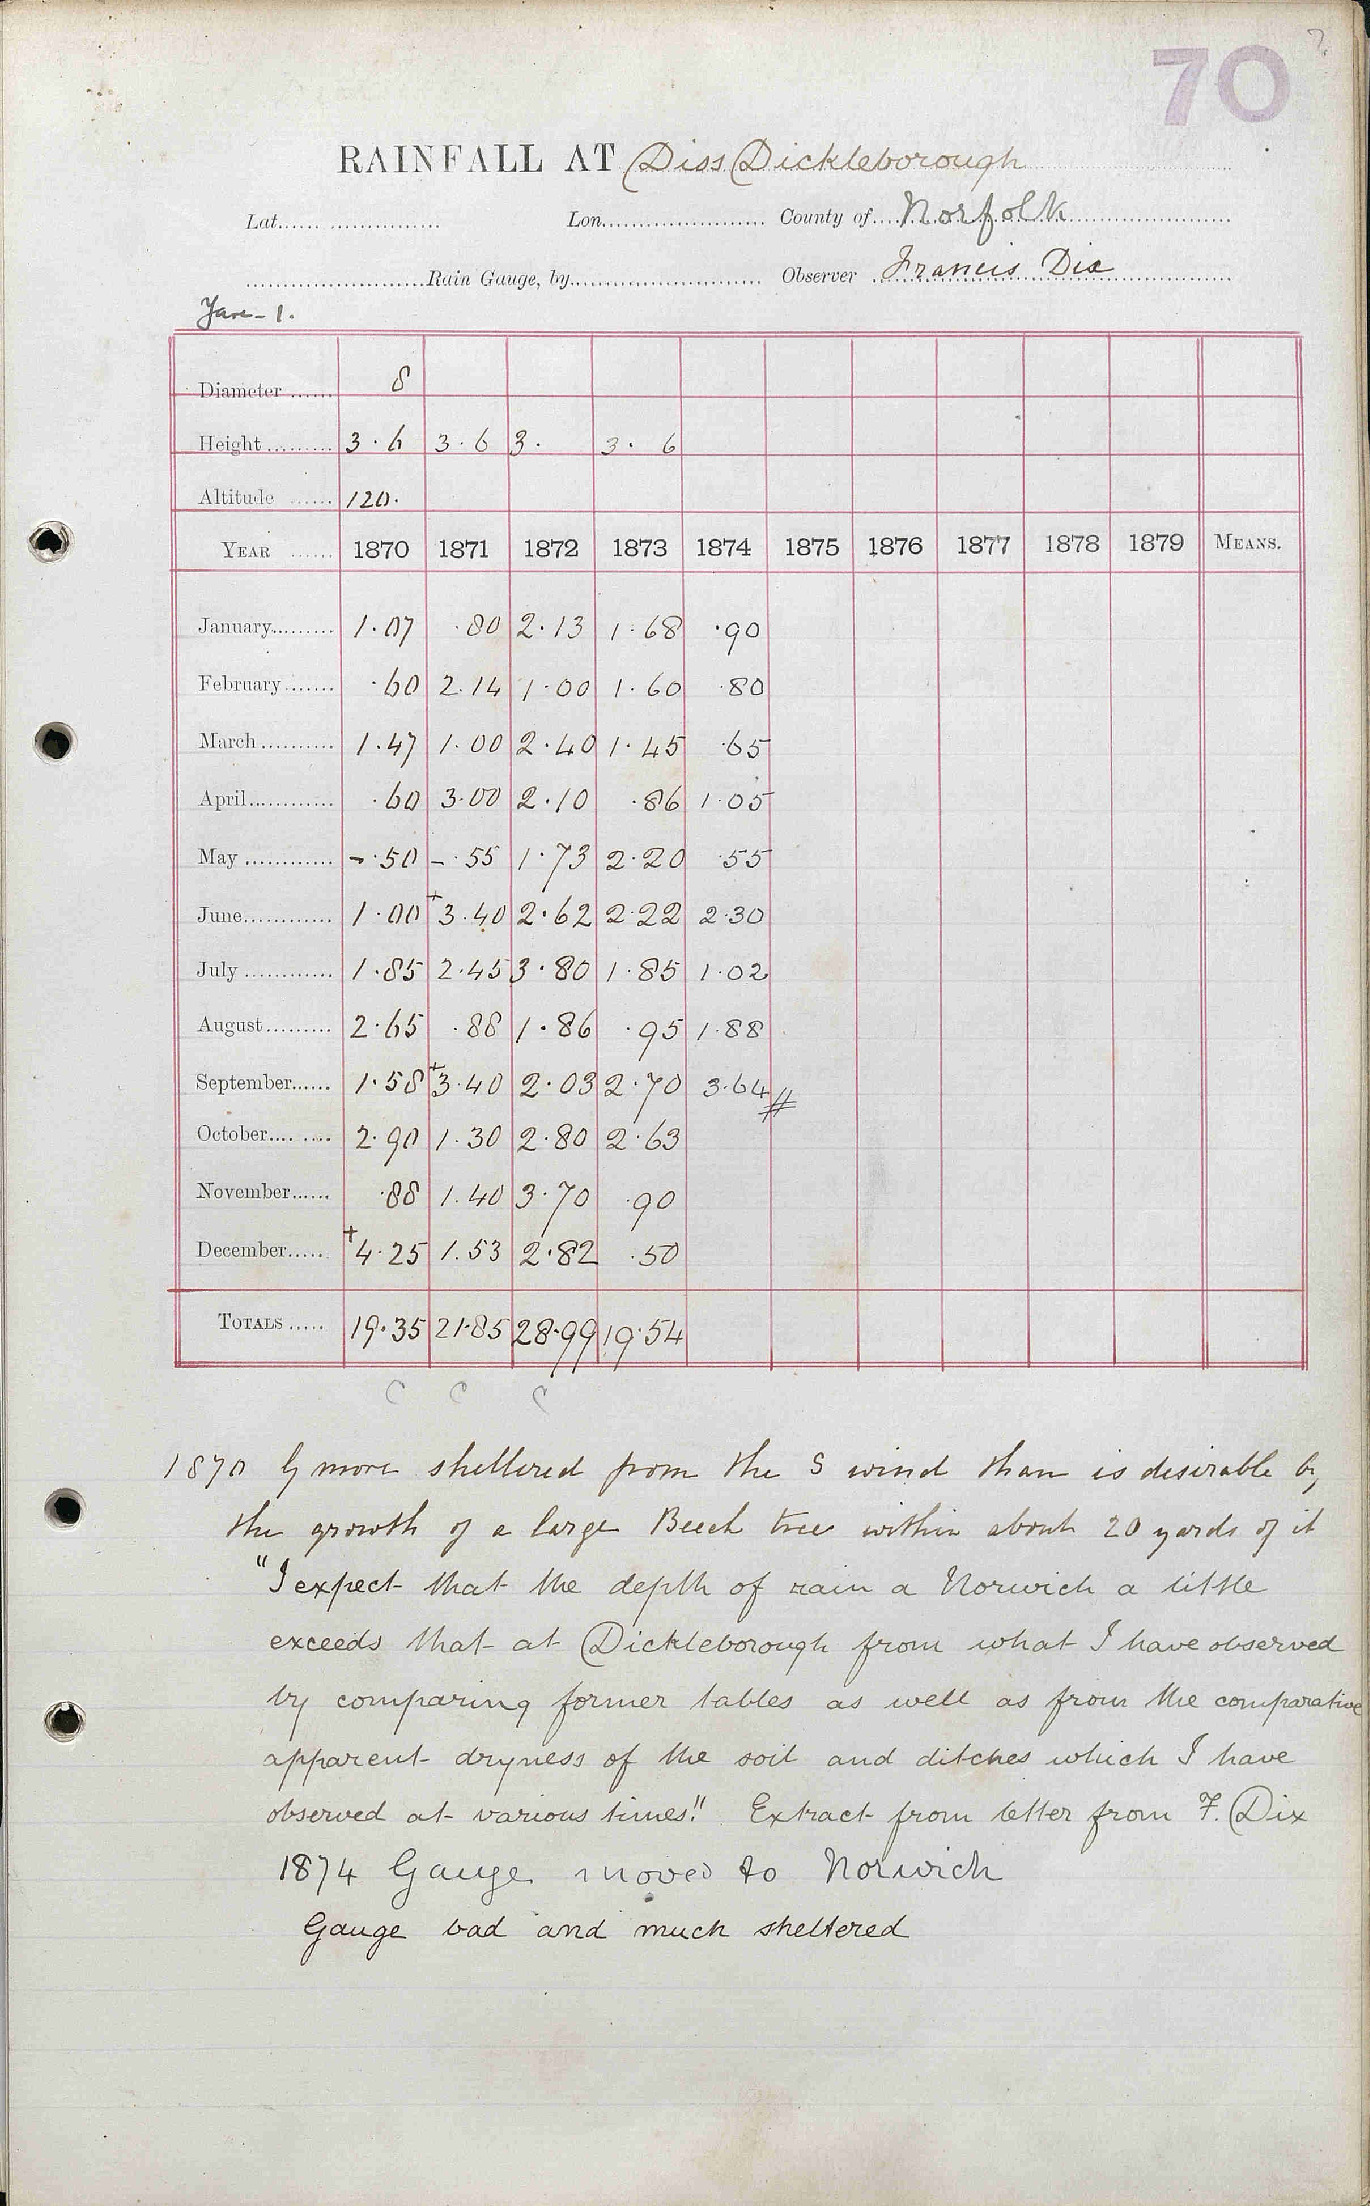 70
RAINFALL AT Diss Dickleborough
Lat. Lon. County of Norfolk
Rain Gauge, by Observer Francis Dix
Jan - 1.
Diameter 8
Height 3.6 3.6 3. 3.6
Altitude 120.
YEAR 1870 1871 1872 1873 1874 1875 1876 1877 1878 1879 MEANS.
January 1.07 .80 2.13 1.68 .90
February .60 2.14 1.00 1.60 .80
March 1.47 1.00 2.40 1.45 .65
April .60 3.00 2.10 .86 1.05
May - .50 - .55 1.73 2.20 .55
June 1.00 +3.40 2.62 2.22 2.30
July 1.85 2.45 3.80 1.85 1.02
August 2.65 .88 1.86 .95 1.88
September 1.58 +3.40 2.03 2.70 3.64 #
October 2.90 1.30 2.80 2.63
November .88 1.40 3.70 .90
December +4.25 1.53 2.82 .50
TOTALS 19.35 21.85 28.99 19.54
C C C
1870 G more sheltered from the S wind than is desirable by
the growth of a large Beech tree within about 20 yards of it
"I expect that the depth of rain a Norwich a little
exceeds that at Dickleborough from what I have observed
by comparing former tables as well as from the comparative
apparent dryness of the soil and ditches which I have
observed at various times." Extract from letter from F. Dix
1874 Gauge moved to Norwich
Gauge bad and much sheltered